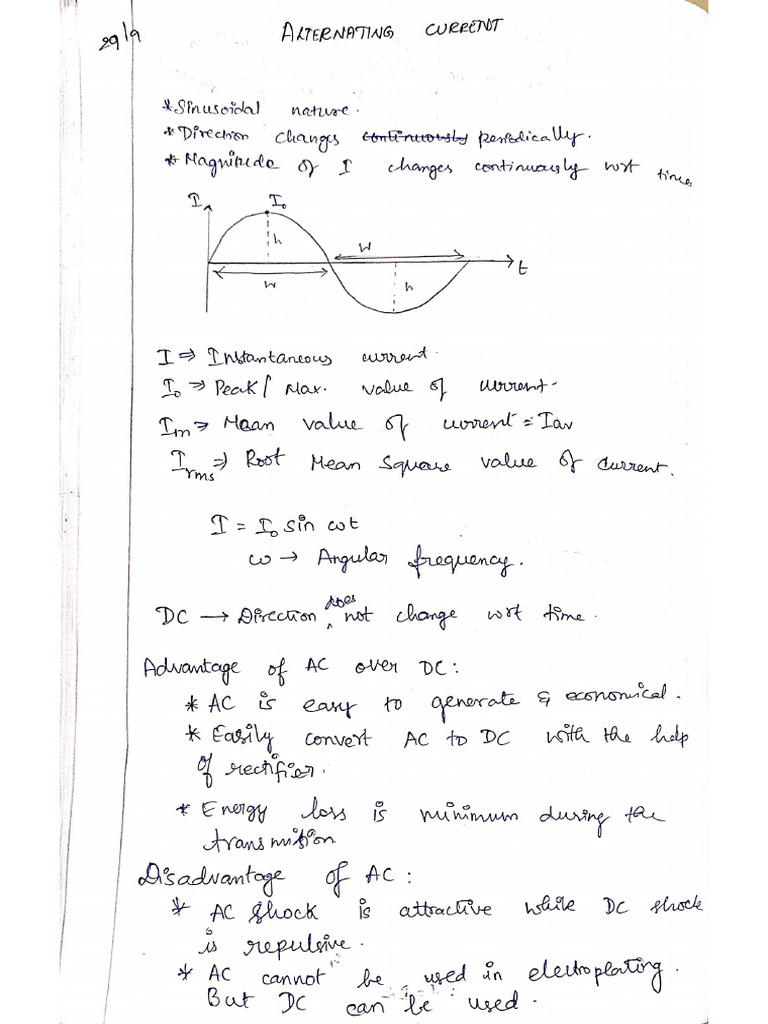 29/9
ALTERNATING CURRENT
*Sinusoidal nature.
*Direction changes continuously periodically.
*Magnitude of I changes continuously wrt time
I I₀
h W
t
W h
I ⇒ Instantaneous current.
I₀ ⇒ Peak/ Max. value of current.
Iₘ ⇒ Mean value of current = Iav
Iᵣₘₛ ⇒ Root Mean Square value of current.
I = I₀ sin ωt
ω → Angular frequency.
does
DC → Direction ‸ not change wrt time.
Advantage of AC over DC:
* AC is easy to generate & economical.
* Easily convert AC to DC with the help
of rectifier.
* Energy loss is minimum during the
transmition
Disadvantage of AC:
* AC shock is attractive while DC shock
is repulsive.
* AC cannot be used in electroplating.
But DC can be used.